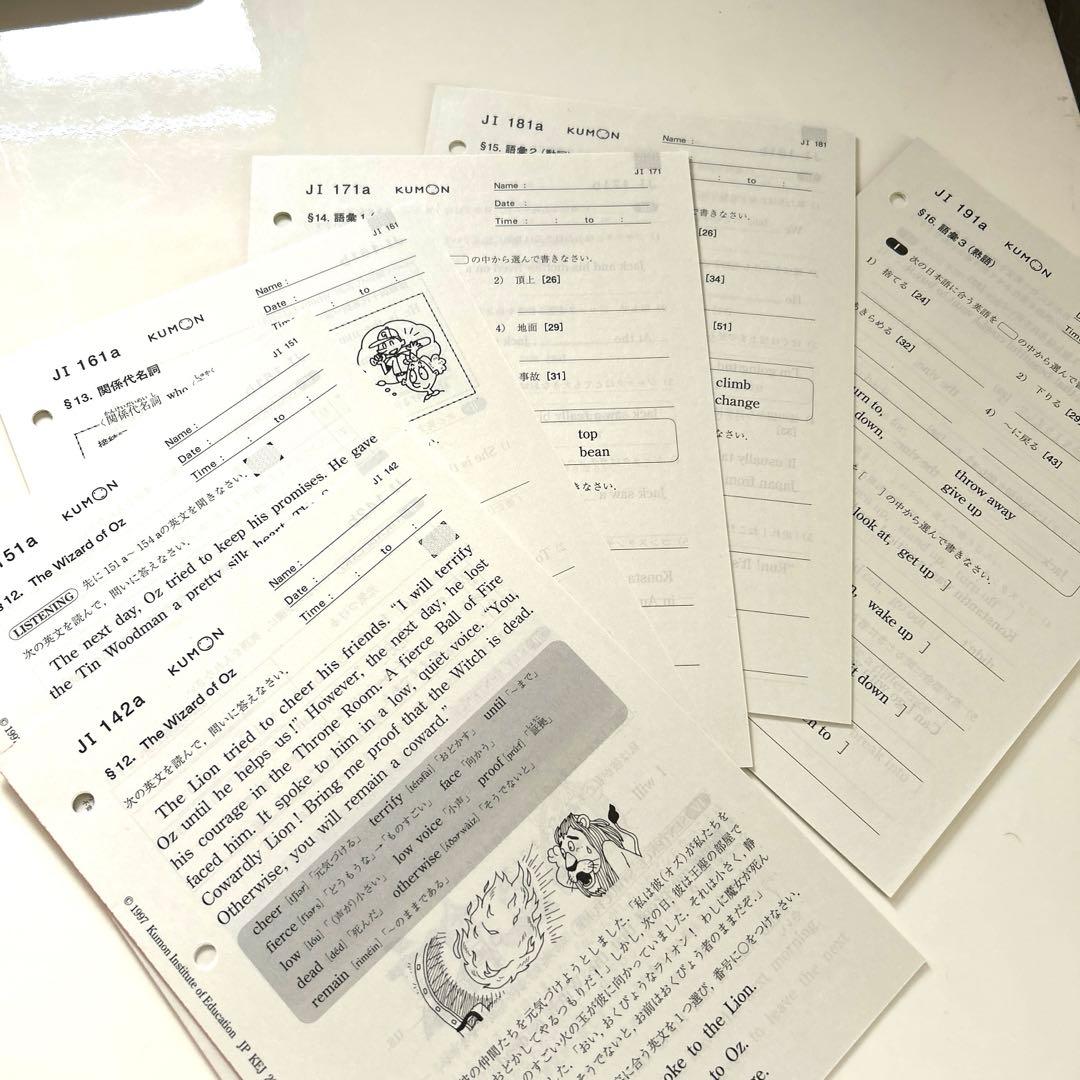 JI 181a KUMON
Name :
JI 181
to :
§15. 語彙2
書きなさい.
[26]
[34]
[51]
climb
change
JI 171a KUMON
Name :
JI 171
Date :
Time : : to :
§14. 語彙1
の中から選んで書きなさい.
2) 頂上 [26]
4) 地面 [29]
事故 [31]
top
bean
なさい.
JI 191a KUMON
§16. 語彙3 (熟語)
1 次の日本語に合う英語を の中から選んで書き
1) 捨てる [24]
2) 下りる [29]
きらめる [32]
4) ～に戻る [43]
turn to,
down,
throw away
give up
[ ] の中から選んで書きなさい.
look at, get up ]
wake up ]
down ]
to ]
JI 161a KUMON
Name :
JI 161
Date :
to :
§13. 関係代名詞
関係代名詞 who
151a KUMON
JI 151
Name :
Date :
Time : to :
§12. The Wizard of Oz
LISTENING 先に 151a～154aの英文を聞きなさい.
次の英文を読んで, 問いに答えなさい.
The next day, Oz tried to keep his promises. He gave
the Tin Woodman a pretty silk heart.
JI 142a KUMON
JI 142
Name :
Date :
Time : to :
§12. The Wizard of Oz
次の英文を読んで, 問いに答えなさい.
The Lion tried to cheer his friends. “I will terrify
Oz until he helps us!” However, the next day, he lost
his courage in the Throne Room. A fierce Ball of Fire
faced him. It spoke to him in a low, quiet voice. “You,
Cowardly Lion! Bring me proof that the Witch is dead.
Otherwise, you will remain a coward.”
cheer [tʃíər] 「元気づける」 terrify [térəfài] 「おどかす」 until 「～まで」
fierce [fíərs] 「どうもうな」→「ものすごい」 face 「向かう」
low [lóu] 「(声が)小さい」 low voice 「小声」 proof [prúːf] 「証拠」
dead [déd] 「死んだ」 otherwise [ʌ́ðərwàiz] 「そうでないと」
remain [riméin] 「～のままである」
の仲間たちを元気づけようとしました. 「私は彼(オズ)が私たちを
おどかしてやるつもりだ!」しかし, 次の日, 彼は王座の部屋で
のすごい火の玉が彼に向かっていました. それは小さく, 静
た. 「おい, おくびょうなライオン! わしに魔女が死ん
そうでないと, お前はおくびょう者のままだぞ.」
に合う英文を1つ選び, 番号に○をつけなさい.
oke to the Lion.
to Oz.
© 1997 Kumon Institute of Education JP KEJ